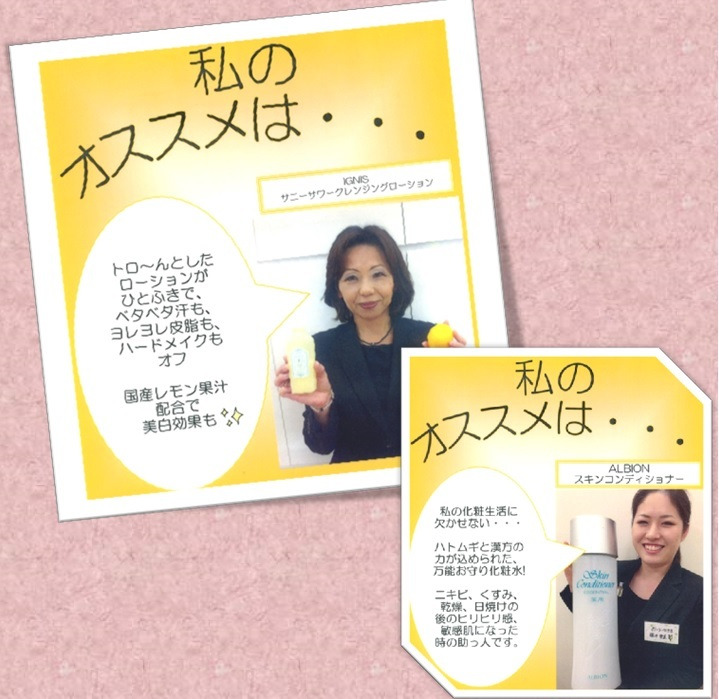 私の
オススメは・・・
IGNIS
サニーサワークレンジングローション
トロ〜んとした
ローションが
ひとふきで、
ベタベタ汗も、
ヨレヨレ皮脂も、
ハードメイクも
オフ
国産レモン果汁
配合で
美白効果も✨
私の
オススメは・・・
ALBION
スキンコンディショナー
私の化粧生活に
欠かせない・・・
ハトムギと漢方の
力が込められた、
万能お守り化粧水!
ニキビ、くすみ、
乾燥、日焼けの
後のヒリヒリ感、
敏感肌になった
時の助っ人です。
Skin
Conditioner